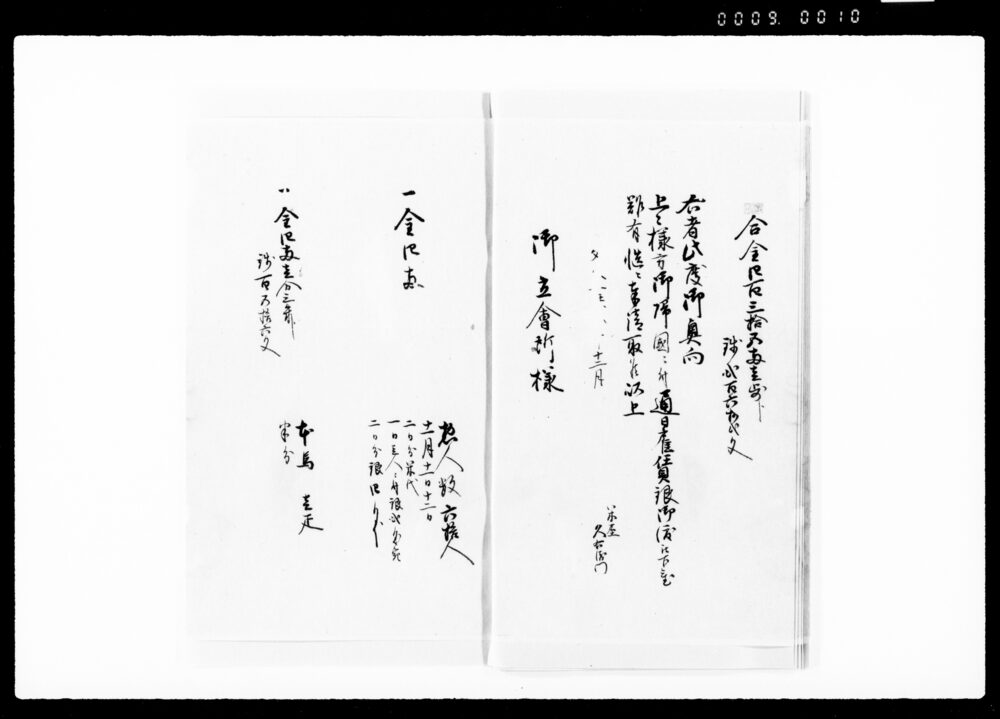 0009. 0010
合金四百三拾五両壱歩ト
銭弐百六拾弐文
右者此度御奥向
上々様方御帰国ニ付通日雇賃銀御渡被下置
難有慥ニ奉請取候以上
十二月
米屋
久右衛門
御立會所様
一金四両
惣人数六拾人
十一月十一日十二日
二日分米代
一日壱人ニ付銀弐匁宛
二日分銀四匁ツヽ
金四両壱分三朱ト
銭百五拾六文
本馬 壱疋